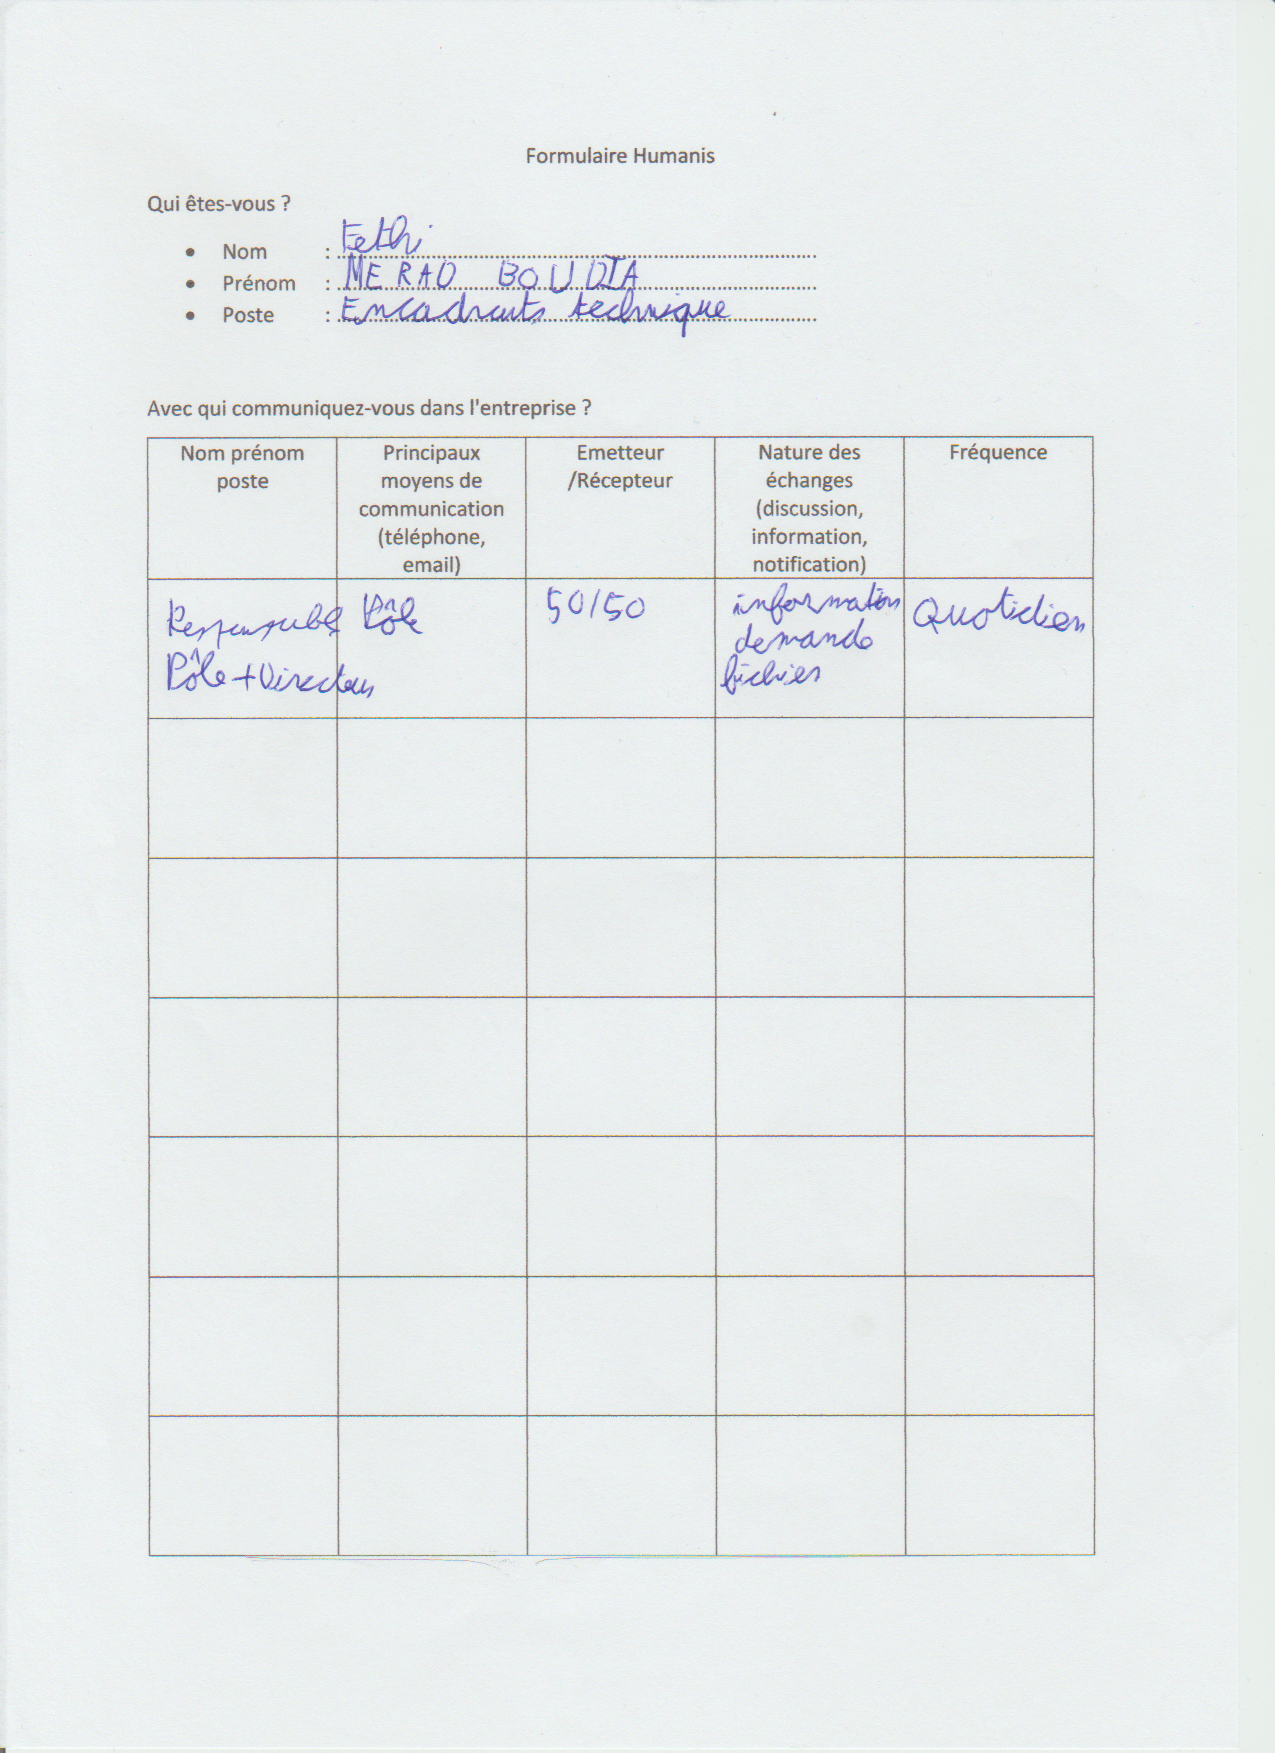 Formulaire Humanis
Qui êtes-vous ?
• Nom : Fethi
• Prénom : MERAD BOUDIA
• Poste : Encadrants technique
Avec qui communiquez-vous dans l'entreprise ?
Nom prénom
poste
Principaux
moyens de
communication
(téléphone,
email)
Emetteur
/Récepteur
Nature des
échanges
(discussion,
information,
notification)
Fréquence
Responsable Pôle
Pôle + Directeur
50/50
information
demande
fichier
Quotidien